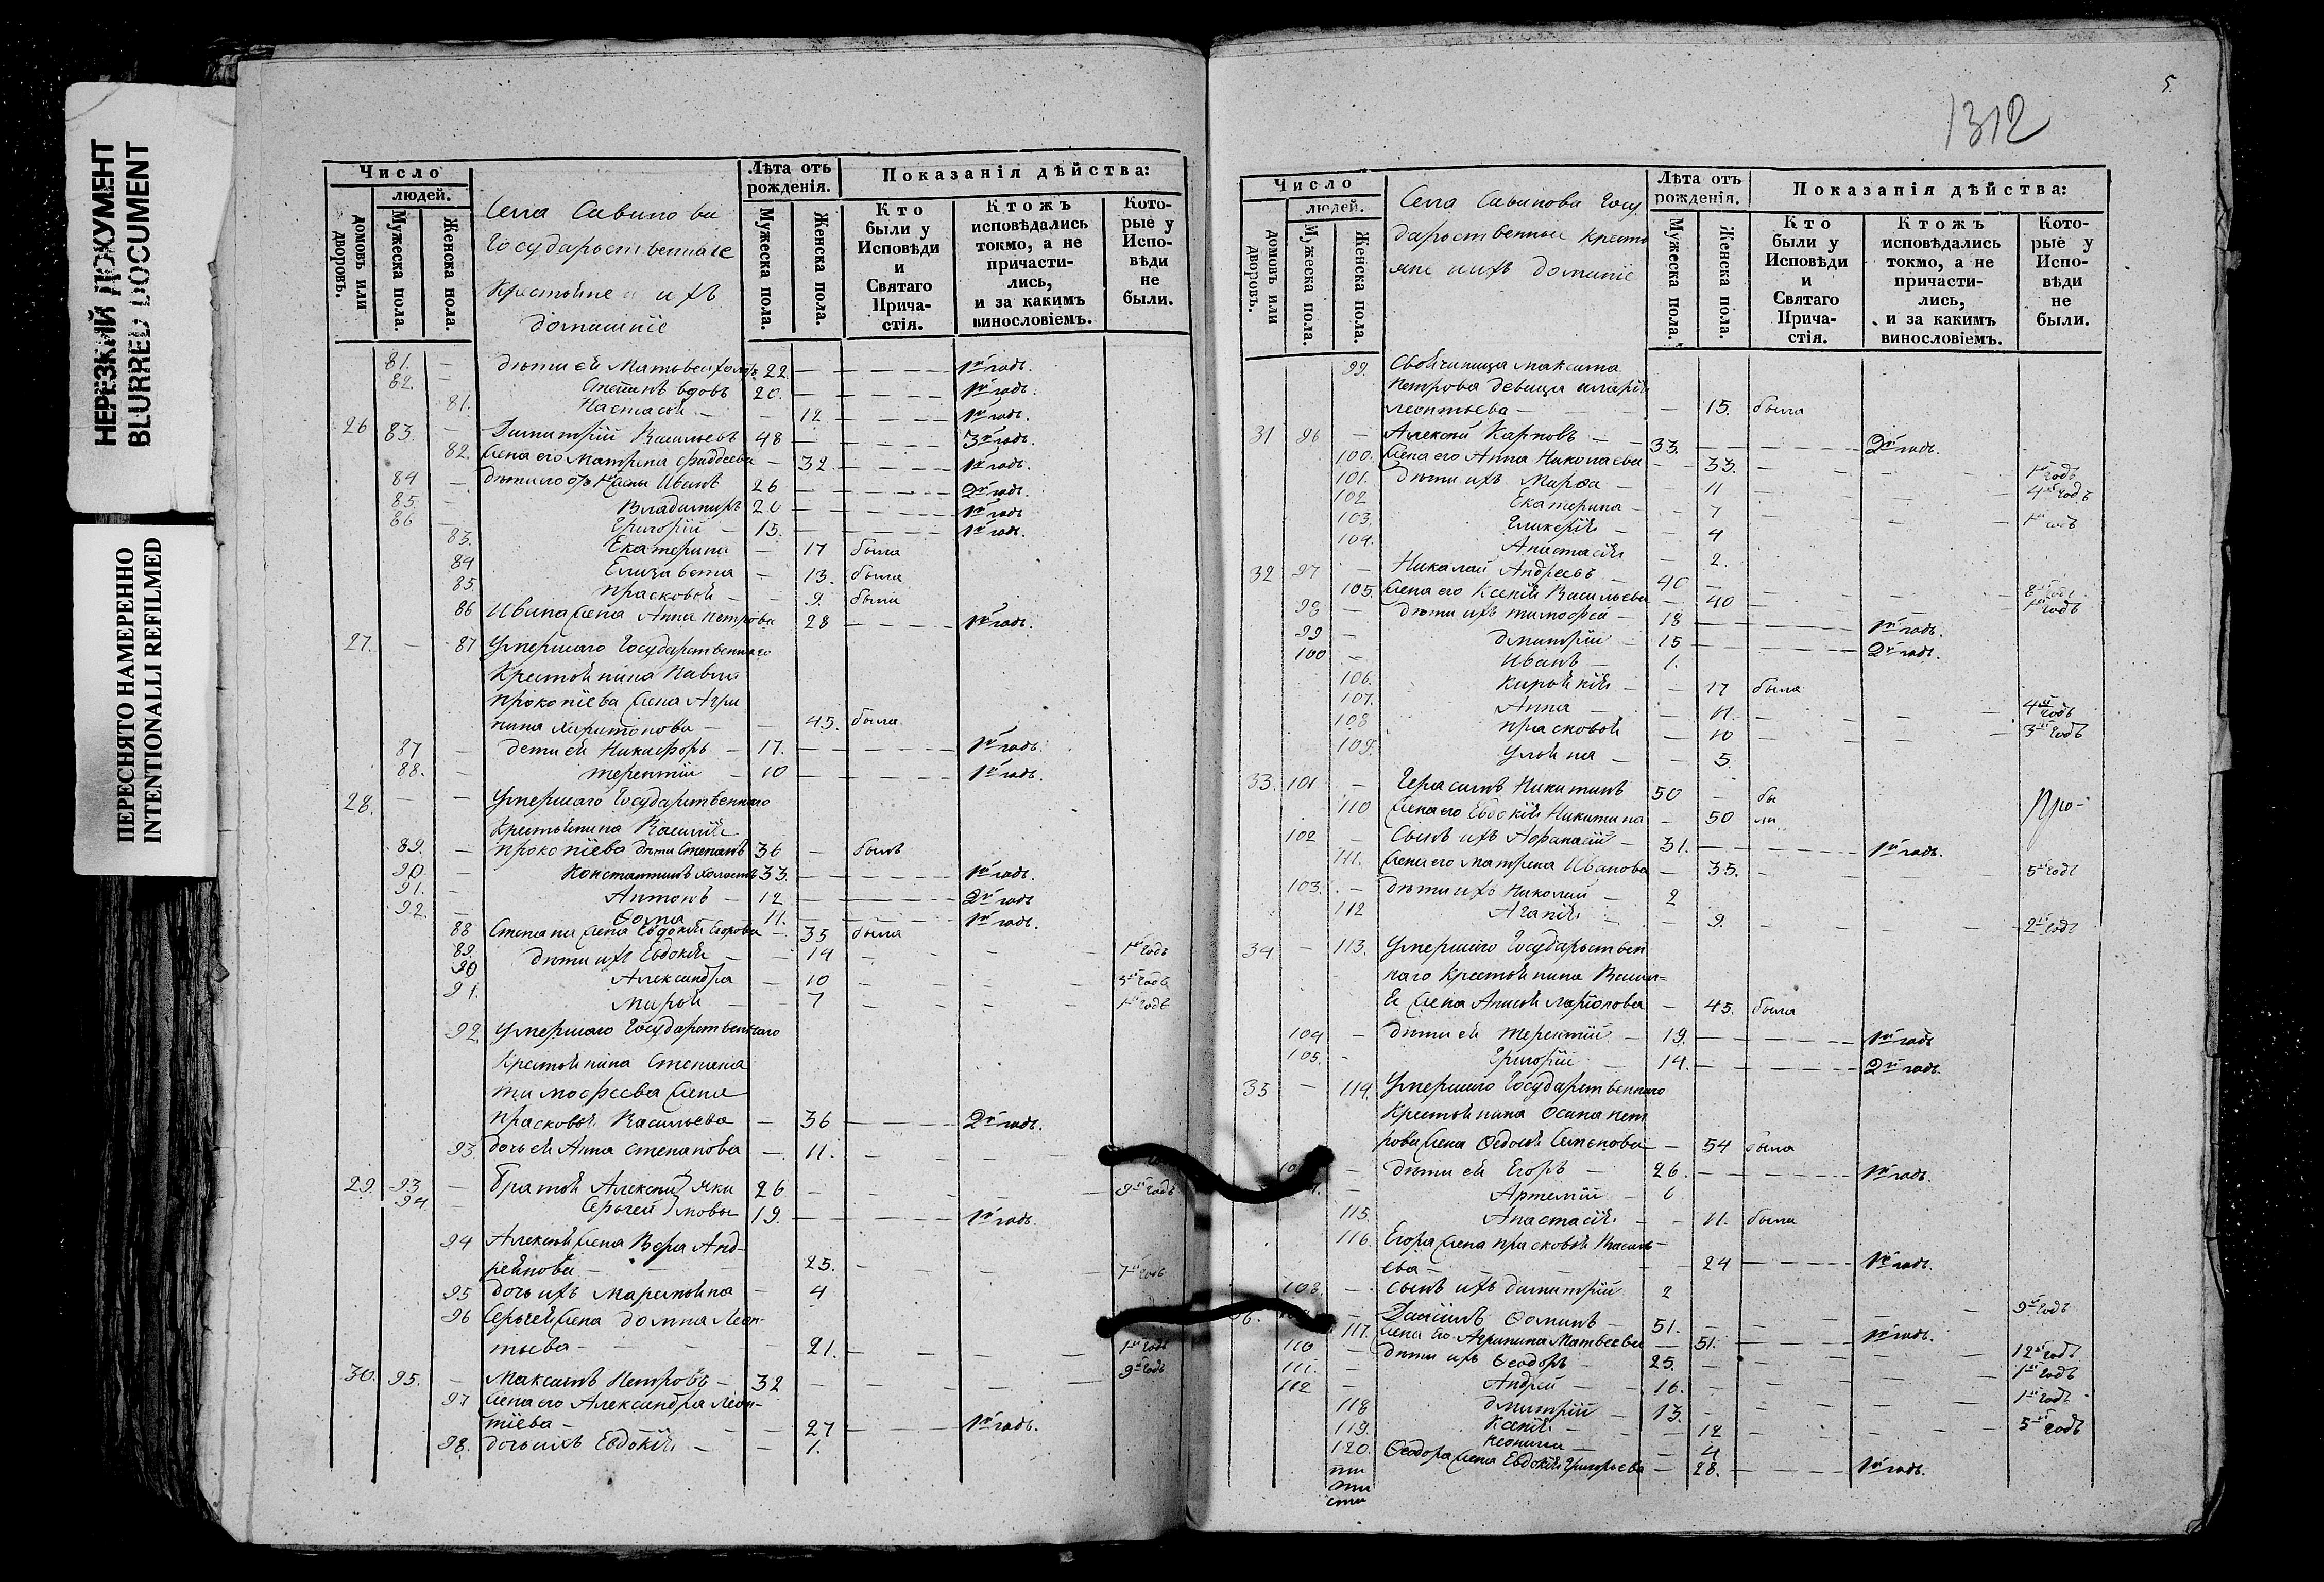 НЕРЕЗКИЙ ДОКУМЕНТ
BLURRED DOCUMENT
ПЕРЕСНЯТО НАМЕРЕННО
INTENTIONALLI REFILMED
Число
людей.
домовъ или дворовъ.
Мужеска пола.
Женска пола.
Села Савинова
Государственные
Крестьяне и ихъ
домашніе
Лѣта отъ рожденія.
Мужеска пола.
Женска пола.
Показанія дѣйства:
Кто были у Исповѣди и Святаго Прича-стія.
Ктожъ исповѣдались токмо, а не причасти-лись, и за какимъ винословіемъ.
Кото-рые у Испо-вѣди не были.
81. — дѣти ей Матвей 22. — 1й годъ.
82. — Степанъ вдовъ 20. — 1й годъ.
81. Настасья — 12. — 1й годъ.
26 83. — Димитрій Васильевъ 48 — 3й годъ.
82. Жена его Матрена Фаддеева — 32. — 1й годъ.
84 — дѣти его отъ 1й жены Иванъ 26 — 2й годъ.
85. — Владимиръ 20 — 1й годъ
86 — Григорій — 15. — 1й годъ.
83. Екатерина — 17 была
84 Елизавета — 13. была
85. Прасковья — 9. была
86 Ивана жена Анна Петрова 28 — 1й годъ.
27. — 87 Умершаго Государственнаго
Крестьянина Павла
Прокопіева жена Агри
пина Харитонова — 45. была
87 — дети ей Никифоръ — 17. — 1й годъ.
88. — Терентій — 10 — 1й годъ.
28. — — Умершаго Государственнаго
Крестьянина Василія
89. — Прокопіева дѣти Степанъ 36 — былъ
90. — Константинъ холостъ 33. — 1й годъ.
91. — Антонъ — 12 — 2й годъ
92. — Ѳома 11. — 1й годъ.
88 Степана жена Евдокія Егорова — 35 была
89. дѣти ихъ Евдокія — 14 — 1й годъ
90 Александра — 10 — 3й годъ
91. Марья — 7 — 1й годъ
92. Умершаго Государственнаго
Крестьянина Степана
Тимофеева жена
Прасковья Васильева — 36 — 2й годъ.
93. дочь ей Анна Степанова — 11. —
29. 93 — Братья Алексѣй Яки 26 — 9й годъ
94 — Сергей мовы 19. — 1й годъ.
94 Алексѣя жена Вера Анд-
реянова — 25. — 7й годъ
95 дочь ихъ Маремьяна — 4
96 Сергея жена Домна Леон-
тьева — 21. — 1й годъ
30. 95. — Максимъ Петровъ — 32 — 9й годъ
97 Жена его Александра Леон-
тіева — 27 — 1й годъ.
98. дочь ихъ Евдокія — 1.
5.
1312
Число
людей.
домовъ или дворовъ.
Мужеска пола.
Женска пола.
Села Савинова Госу
дарственные кресть
яне и ихъ домашніе
Лѣта отъ рожденія.
Мужеска пола.
Женска пола.
Показанія дѣйства:
Кто были у Исповѣди и Святаго Прича-стія.
Ктожъ исповѣдались токмо, а не причасти-лись, и за какимъ винословіемъ.
Кото-рые у Испо-вѣди не были.
99. Своячиница Максима
Петрова девица Марія
Леонтьева — 15. была
31 96 — Алексѣй Карповъ — 33. — 2й годъ.
100. Жена его Анна Николаева — 33. — 1й годъ
101. Дѣти ихъ Марѳа — 11 — 4й годъ
102 Екатерина — 7 — 1й годъ
103. Гликерія — 4
104. Анастасія — 2.
32 97 — Николай Андреевъ — 40 — 8й годъ
105. Жена его Ксенія Васильева — 40 — 1й годъ
98 — дѣти ихъ Тимофей — 18 — 1й годъ.
99 — Дмитрій — 15 — 2й годъ.
100 — Иванъ — 1.
106. Киріакія — 17 была
107. Анна — 11. — 4й годъ
108 Прасковья — 10 — 3й годъ
109. Ульяна — 5.
33. 101 — Герасимъ Никитинъ 50 — бы
110 Жена его Евдокія Никитина — 50 ли
Про-
102 — Сынъ ихъ Афанасій — 31. — 1й годъ.
111. Жена его Матрена Иванова — 35. — 5й годъ
103. — дѣти ихъ Николай — 2
112 Агапія — 9. — 2й годъ
34 — 113. Умершаго Государствен
наго Крестьянина Васил=
ія жена Анисья Ларіонова — 45. была
104 — дѣти ей Терентій — 19. — 1й годъ
105. — Григорій 14. — 2й годъ.
35 — 114. Умершаго Государственнаго
Крестьянина Осипа Пет
рова жена Ѳедосья Семенова — 54 была
— дѣти ей Егоръ — 26. — 1й годъ.
— Артемій — 6
115. Анастасія — 11. была
116. Егора жена Прасковья Василь-
ева — 24 — 1й годъ.
108 — сынъ ихъ Димитрій 2
36. — Даніилъ Ѳоминъ — 51. — 9й годъ
117. Жена его Агрипина Матвеева — 51. — 1й годъ.
110 — Дѣти ихъ Ѳеодоръ — 25. — 12й годъ
111. — Андрей — 16. — 1й годъ
112 — Дмитрій — 13. — 1й годъ
118 Ксенія — 12 — 5й годъ
119. — 4
120. Ѳеодора жена Евдокія Григорьева — 28. — 1й годъ.